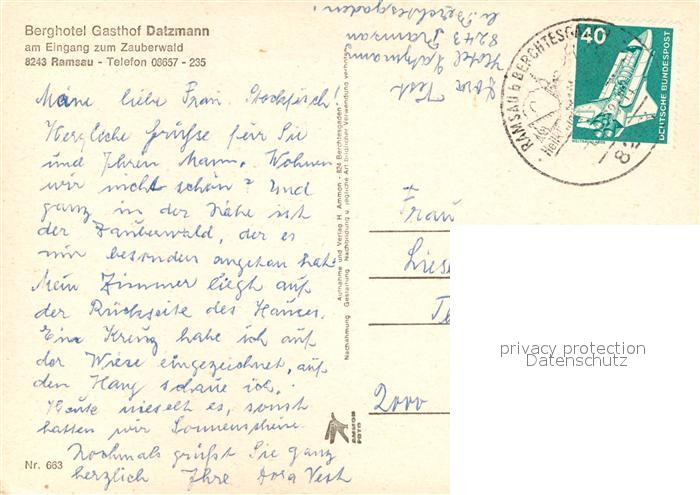 Berghotel Gasthof Datzmann
am Eingang zum Zauberwald
8243 Ramsau - Telefon 08657 - 235
Meine liebe Frau Stockfisch!
Herzliche Grüsse für Sie
und Ihren Mann. Wohnen
wir nicht schön? Und
ganz in der Nähe ist
der Zauberwald, der es
mir besonders angetan hat.
Mein Zimmer liegt auf
der Rückseite des Hauses.
Ein Kreuz habe ich auf
der Wiese eingezeichnet, auf
den Hang schaue ich.
Heute nieselt es, sonst
hatten wir Sonnenschein.
Nochmals grüßt Sie ganz
herzlich Ihre Dora Vest
Nr. 663
Dora Vest
Hotel Datzmann
8243 Ramsau
b. Berchtesgaden.
Aufnahme und Verlag H. Ammon - 824 Berchtesgaden
Nachahmung Gestaltung Nachbindung u. jegliche Art bildlicher Verwendung verboten
AMMON
FOTO
RAMSAU b BERCHTESGADEN
40
DEUTSCHE BUNDESPOST
Frau
Liese
2000
privacy protection
Datenschutz